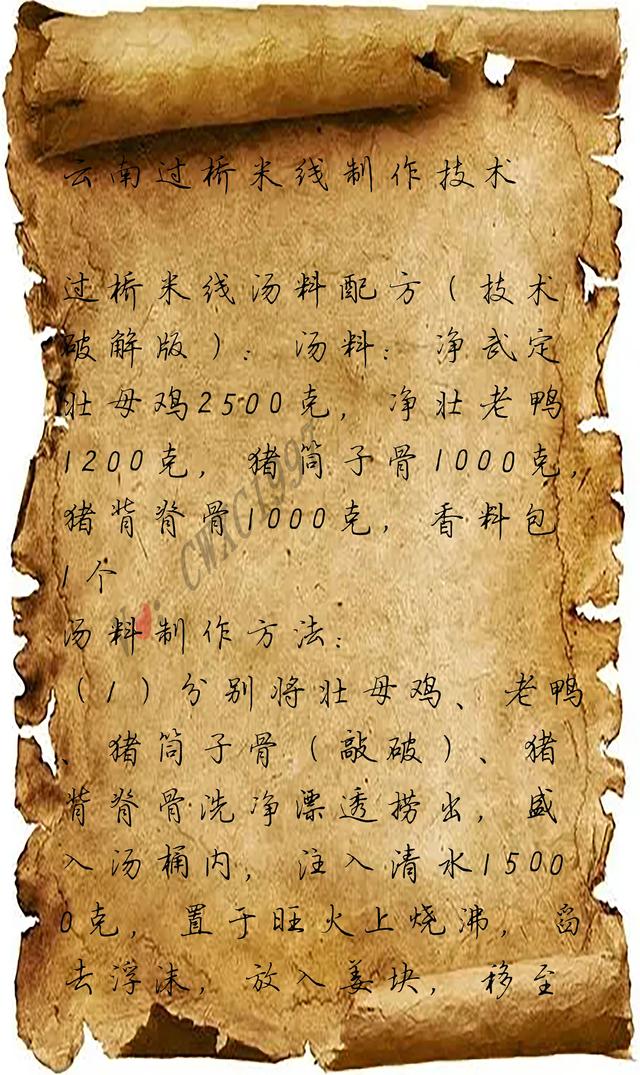 云南过桥米线制作技术
过桥米线汤料配方（技术
破解版）：汤料：净武定
壮母鸡2500克，净壮老鸭
1200克，猪筒子骨1000克，
猪背脊骨1000克，香料包
1个
汤料制作方法：
（1）分别将壮母鸡、老鸭
、猪筒子骨（敲破）、猪
背脊骨洗净漂透捞出，盛
入汤桶内，注入清水1500
0克，置于旺火上烧沸，舀
去浮沫，放入姜块，移至
CWXC1997